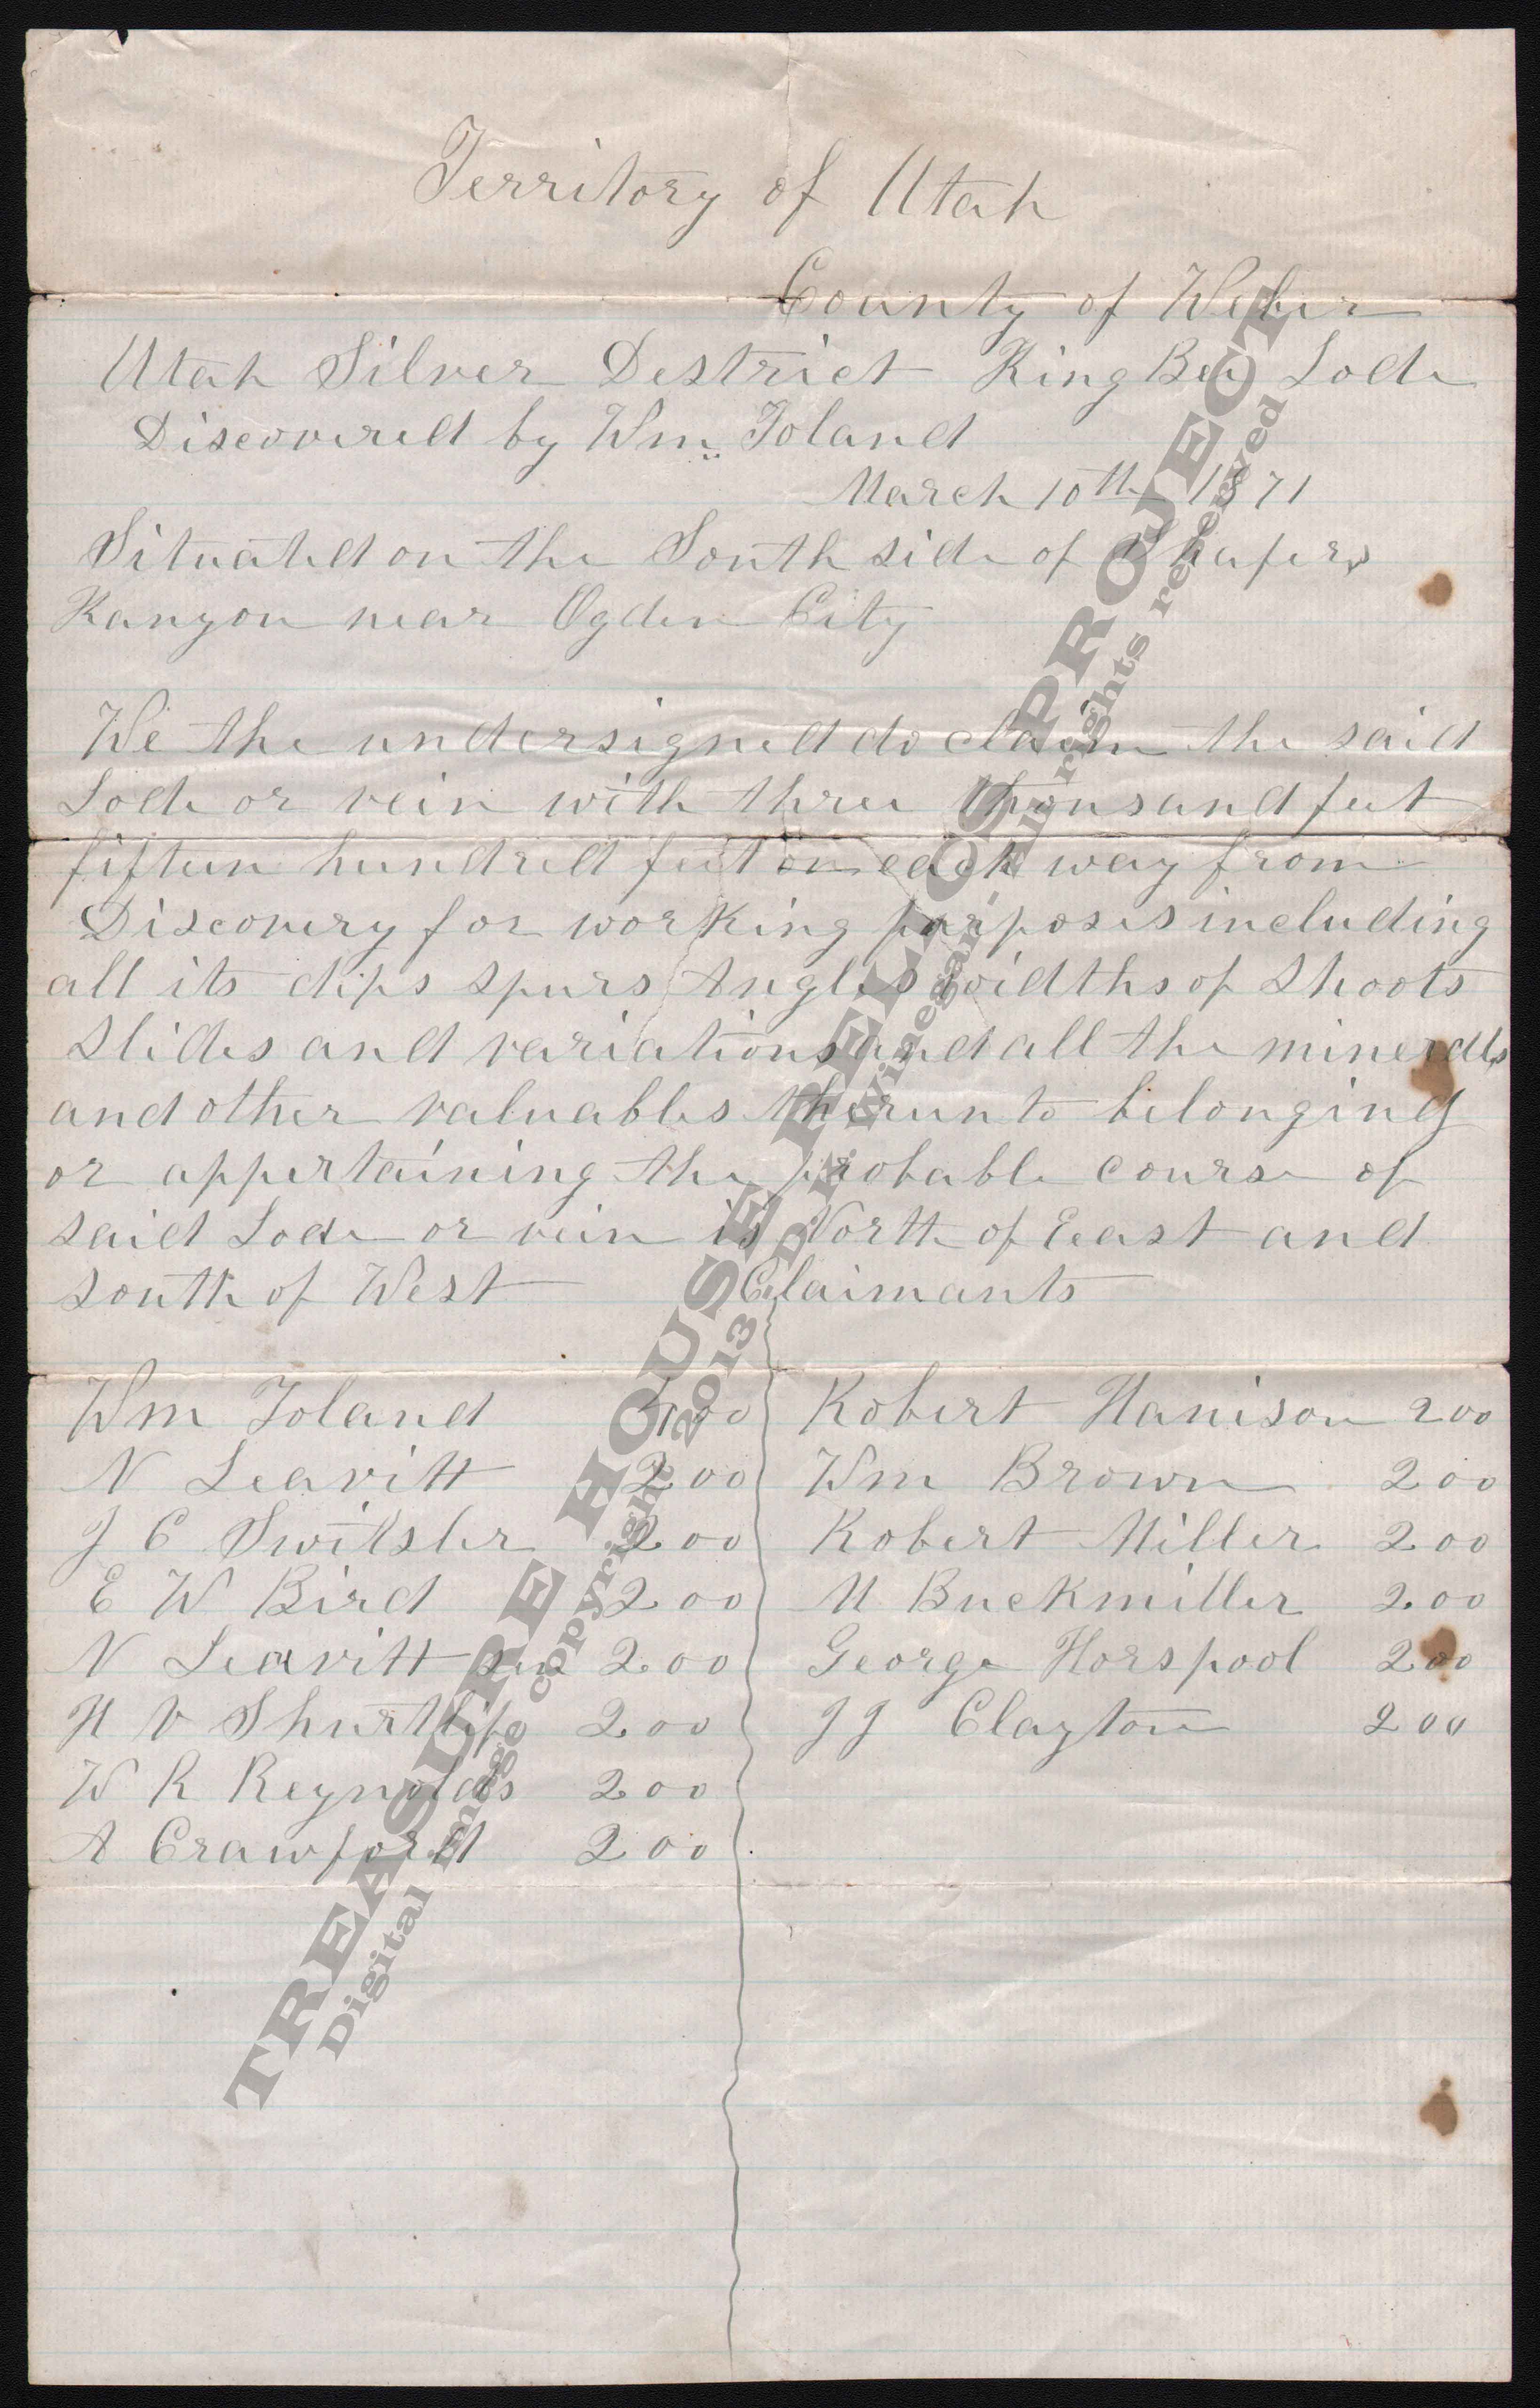 Territory of Utah
County of Weber
Utah Silver Destrict King Bee Lode
Discovered by Wm. Toland
March 10th 1871
Situated on the South side of
Kanyon near Ogden City
We the undersigned do claim the said
Lode or vein with three thousand feet
fifteen hundred feet on each way from
Discovery for working purposes including
all its dips spurs Angles widths of Shoots
Slides and variations and all the minerals
and other valuables therunto belonging
or appertaining the probable course of
said Lode or vein is North of Eeast and
south of West Claimants
Wm Toland 400
N Leavitt 200
J C Switsler 200
E W Bird 200
N Leavitt sen 200
H V Shurtlif 200
W R Reynolds 200
A Crawford 200
Robert Harrison 200
Wm Brown 200
Robert Miller 200
M Buckmiller 200
George Horspool 200
J J Clayton 200
TREASURE HOUSE RELICS PROJECT
Digital image copyright 2013 D.K. Winegar - All rights reserved